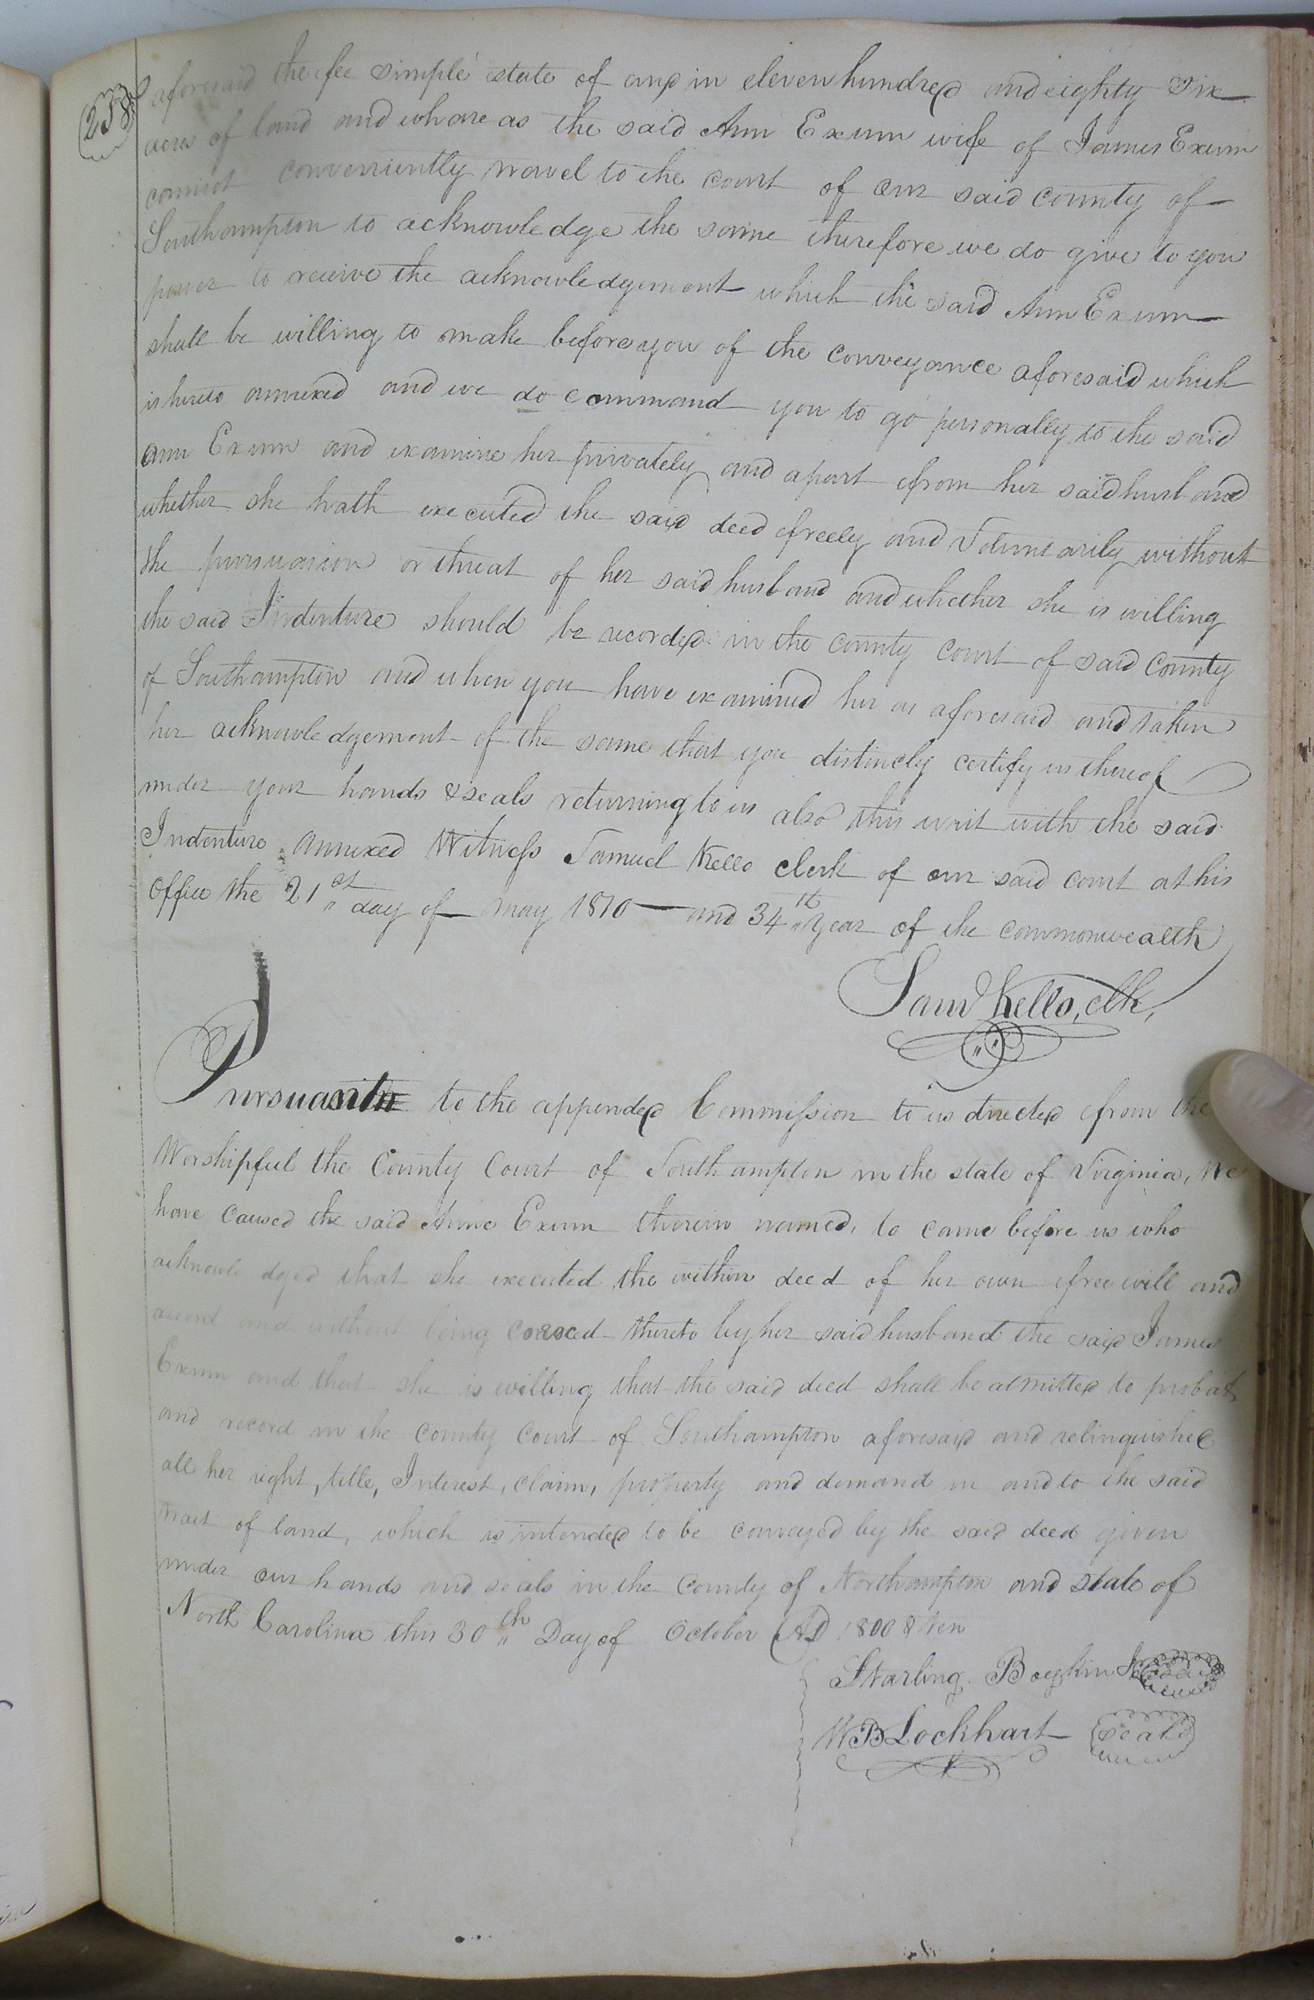 258
aforesaid the fee simple estate of and in eleven hundred and eighty Six
acres of land and whareas the said Ann Exum wife of James Exum
connot conveniently travel to the court of our said county of
Southampton to acknowledge the same therefore we do give to you
power to receive the acknowledgement which the said Ann Exum
shall be willing to make before you of the conveyance aforesaid which
is hereto annexed and we do command you to go personally to the said
Ann Exum and examine her privately and apart from her said husband
whether she hath executed the said deed freely and Voluntarily without
the pursuasion or threat of her said husband and whether she is willing
the said Indenture should be recorded in the county court of said County
of Southampton and when you have examined her as aforesaid and taken
her acknowledgement of the same that you distincly certify us thereof
under your hands & seals returning to us also this writ with the said
Indenture annexed Witness Samuel Kello clerk of our said court at his
Office the 21st day of may 1810 and 34th year of the commonwealth
Saml Kello, clk,
Pursuant to the appended Commission to us directed from the
Worshipful the County Court of Southampton in the state of Virginia, We
have caused the said Anne Exum therein named, to came before us who
acknowledged that she executed the within deed of her own free will and
accord and without being coerced thereto by her said husband the said James
Exum and that she is willing that the said deed shall be admitted to probat
and record in the County Court of Southampton aforesaid and relinquished
all her right, title, Interest, claim, property and demand in and to the said
tract of land, which is intended to be conveyed by the said deed given
under our hands and seals in the County of Northampton and state of
North Carolina this 30th Day of October AD 1800 & ten
Starling Boykin Seal
WB Lockhart Seal